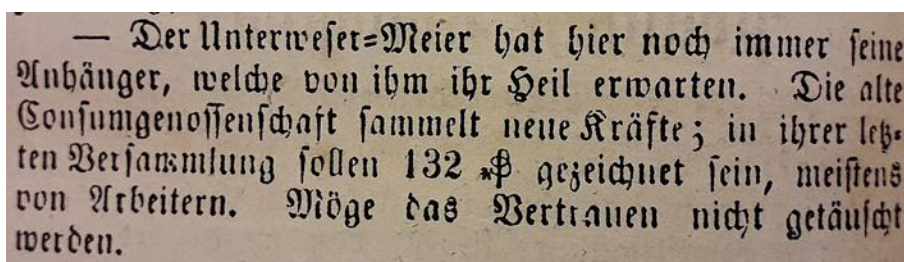 — Der Unterweser=Meier hat hier noch immer seine
Anhänger, welche von ihm ihr Heil erwarten. Die alte
Consumgenossenschaft sammelt neue Kräfte; in ihrer letz=
ten Versammlung sollen 132 ₰ gezeichnet sein, meistens
von Arbeitern. Möge das Vertrauen nicht getäuscht
werden.